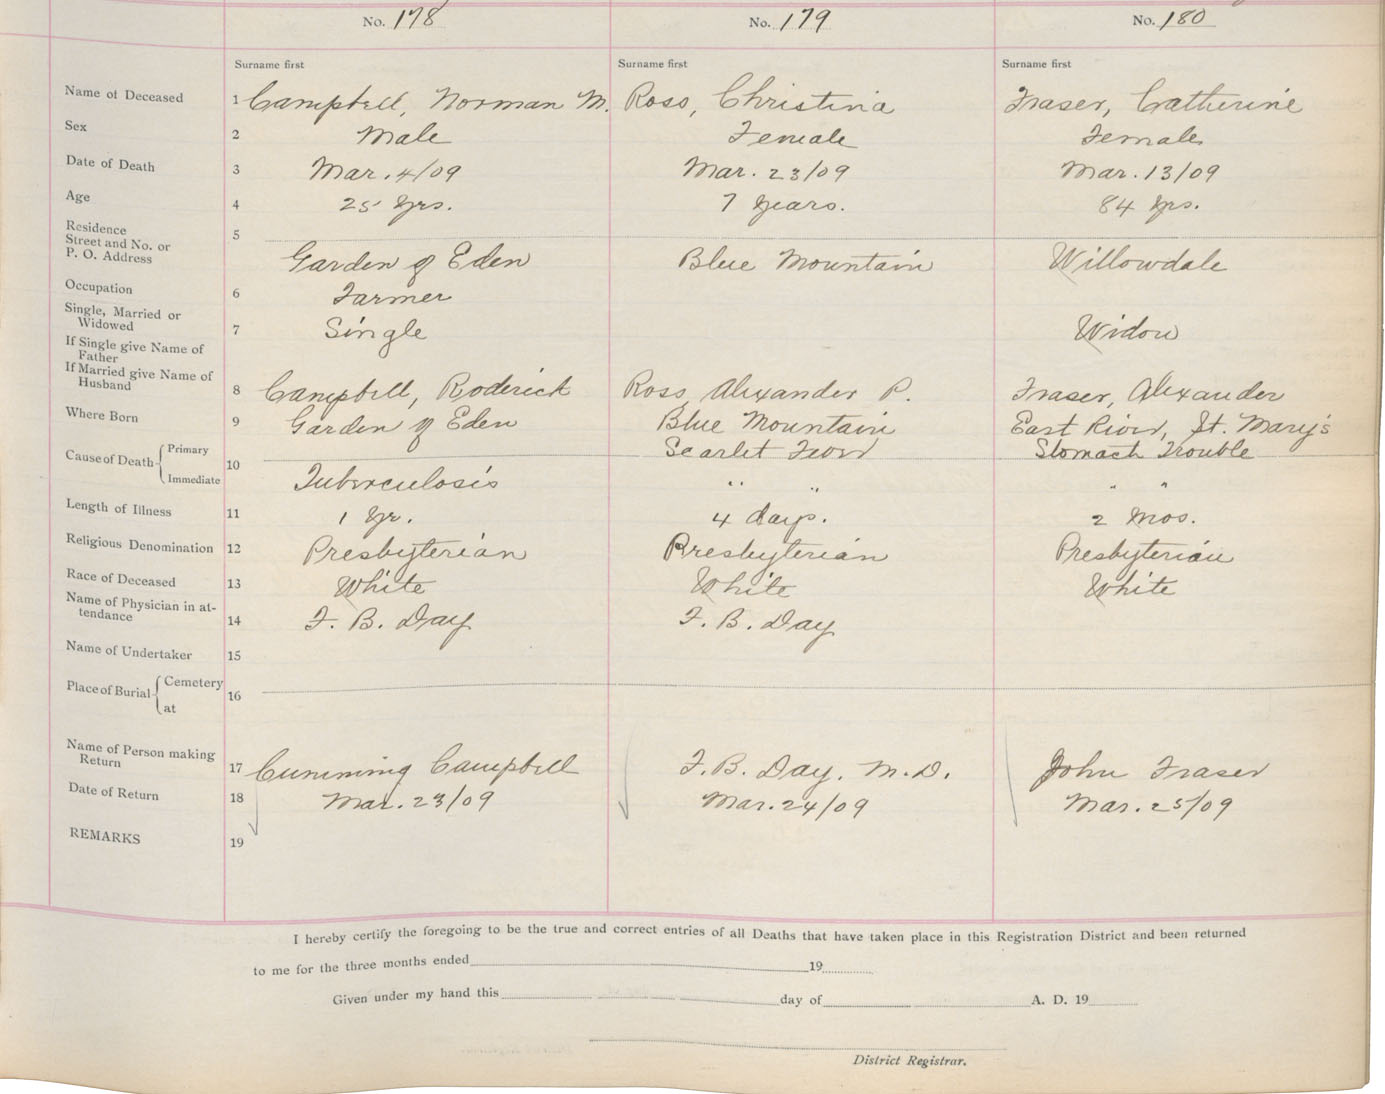 No. 178 No. 179 No. 180
Surname first Surname first Surname first
Name of Deceased 1 Campbell, Norman M. Ross, Christina Fraser, Catherine
Sex 2 Male Female Female
Date of Death 3 Mar. 4/09 Mar. 23/09 Mar. 13/09
Age 4 25 Yrs. 7 Years. 84 Yrs.
Residence 5
Street and No. or
P. O. Address Garden of Eden Blue Mountain Willowdale
Occupation 6 Farmer
Single, Married or
Widowed 7 Single Widow
If Single give Name of
Father
If Married give Name of
Husband 8 Campbell, Roderick Ross, Alexander P. Fraser, Alexander
Where Born 9 Garden of Eden Blue Mountain East River, St. Mary's
Cause of Death Primary Scarlet Fever Stomach Trouble
Immediate 10 Tuberculosis " " " "
Length of Illness 11 1 Yr. 4 days. 2 Mos.
Religious Denomination 12 Presbyterian Presbyterian Presbyterian
Race of Deceased 13 White White White
Name of Physician in at-
tendance 14 F. B. Day F. B. Day
Name of Undertaker 15
Place of Burial Cemetery 16
at
Name of Person making
Return 17 Cumming Campbell F. B. Day, M.D. John Fraser
Date of Return 18 Mar. 23/09 Mar. 24/09 Mar. 25/09
REMARKS 19
I hereby certify the foregoing to be the true and correct entries of all Deaths that have taken place in this Registration District and been returned
to me for the three months ended 19
Given under my hand this day of A. D. 19
District Registrar.